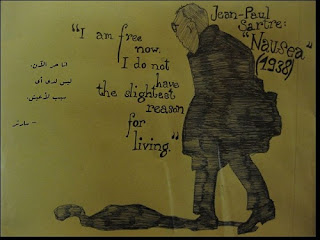 "I am free
now.
I do not
have
the slightest
reason
for
living."
Jean-Paul
Sartre:
"Nausea"
(1938)
أنا حر الآن،
ليس لدي أي
سبب لأعيش.
- سارتر